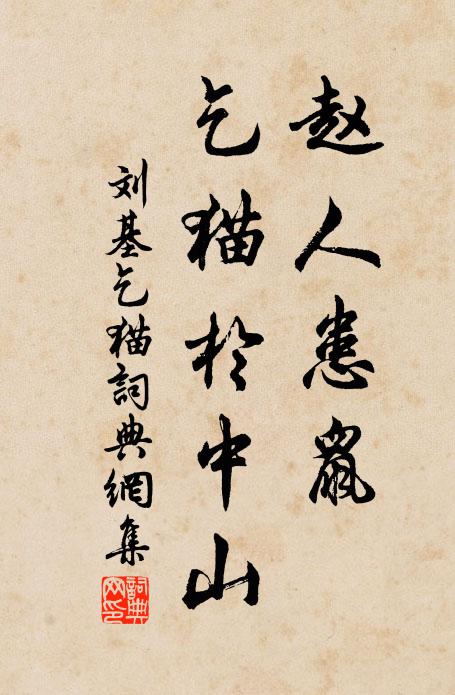 赵人患鼠
乞猫於中山
刘基乞猫詞典網集
詞典
网印